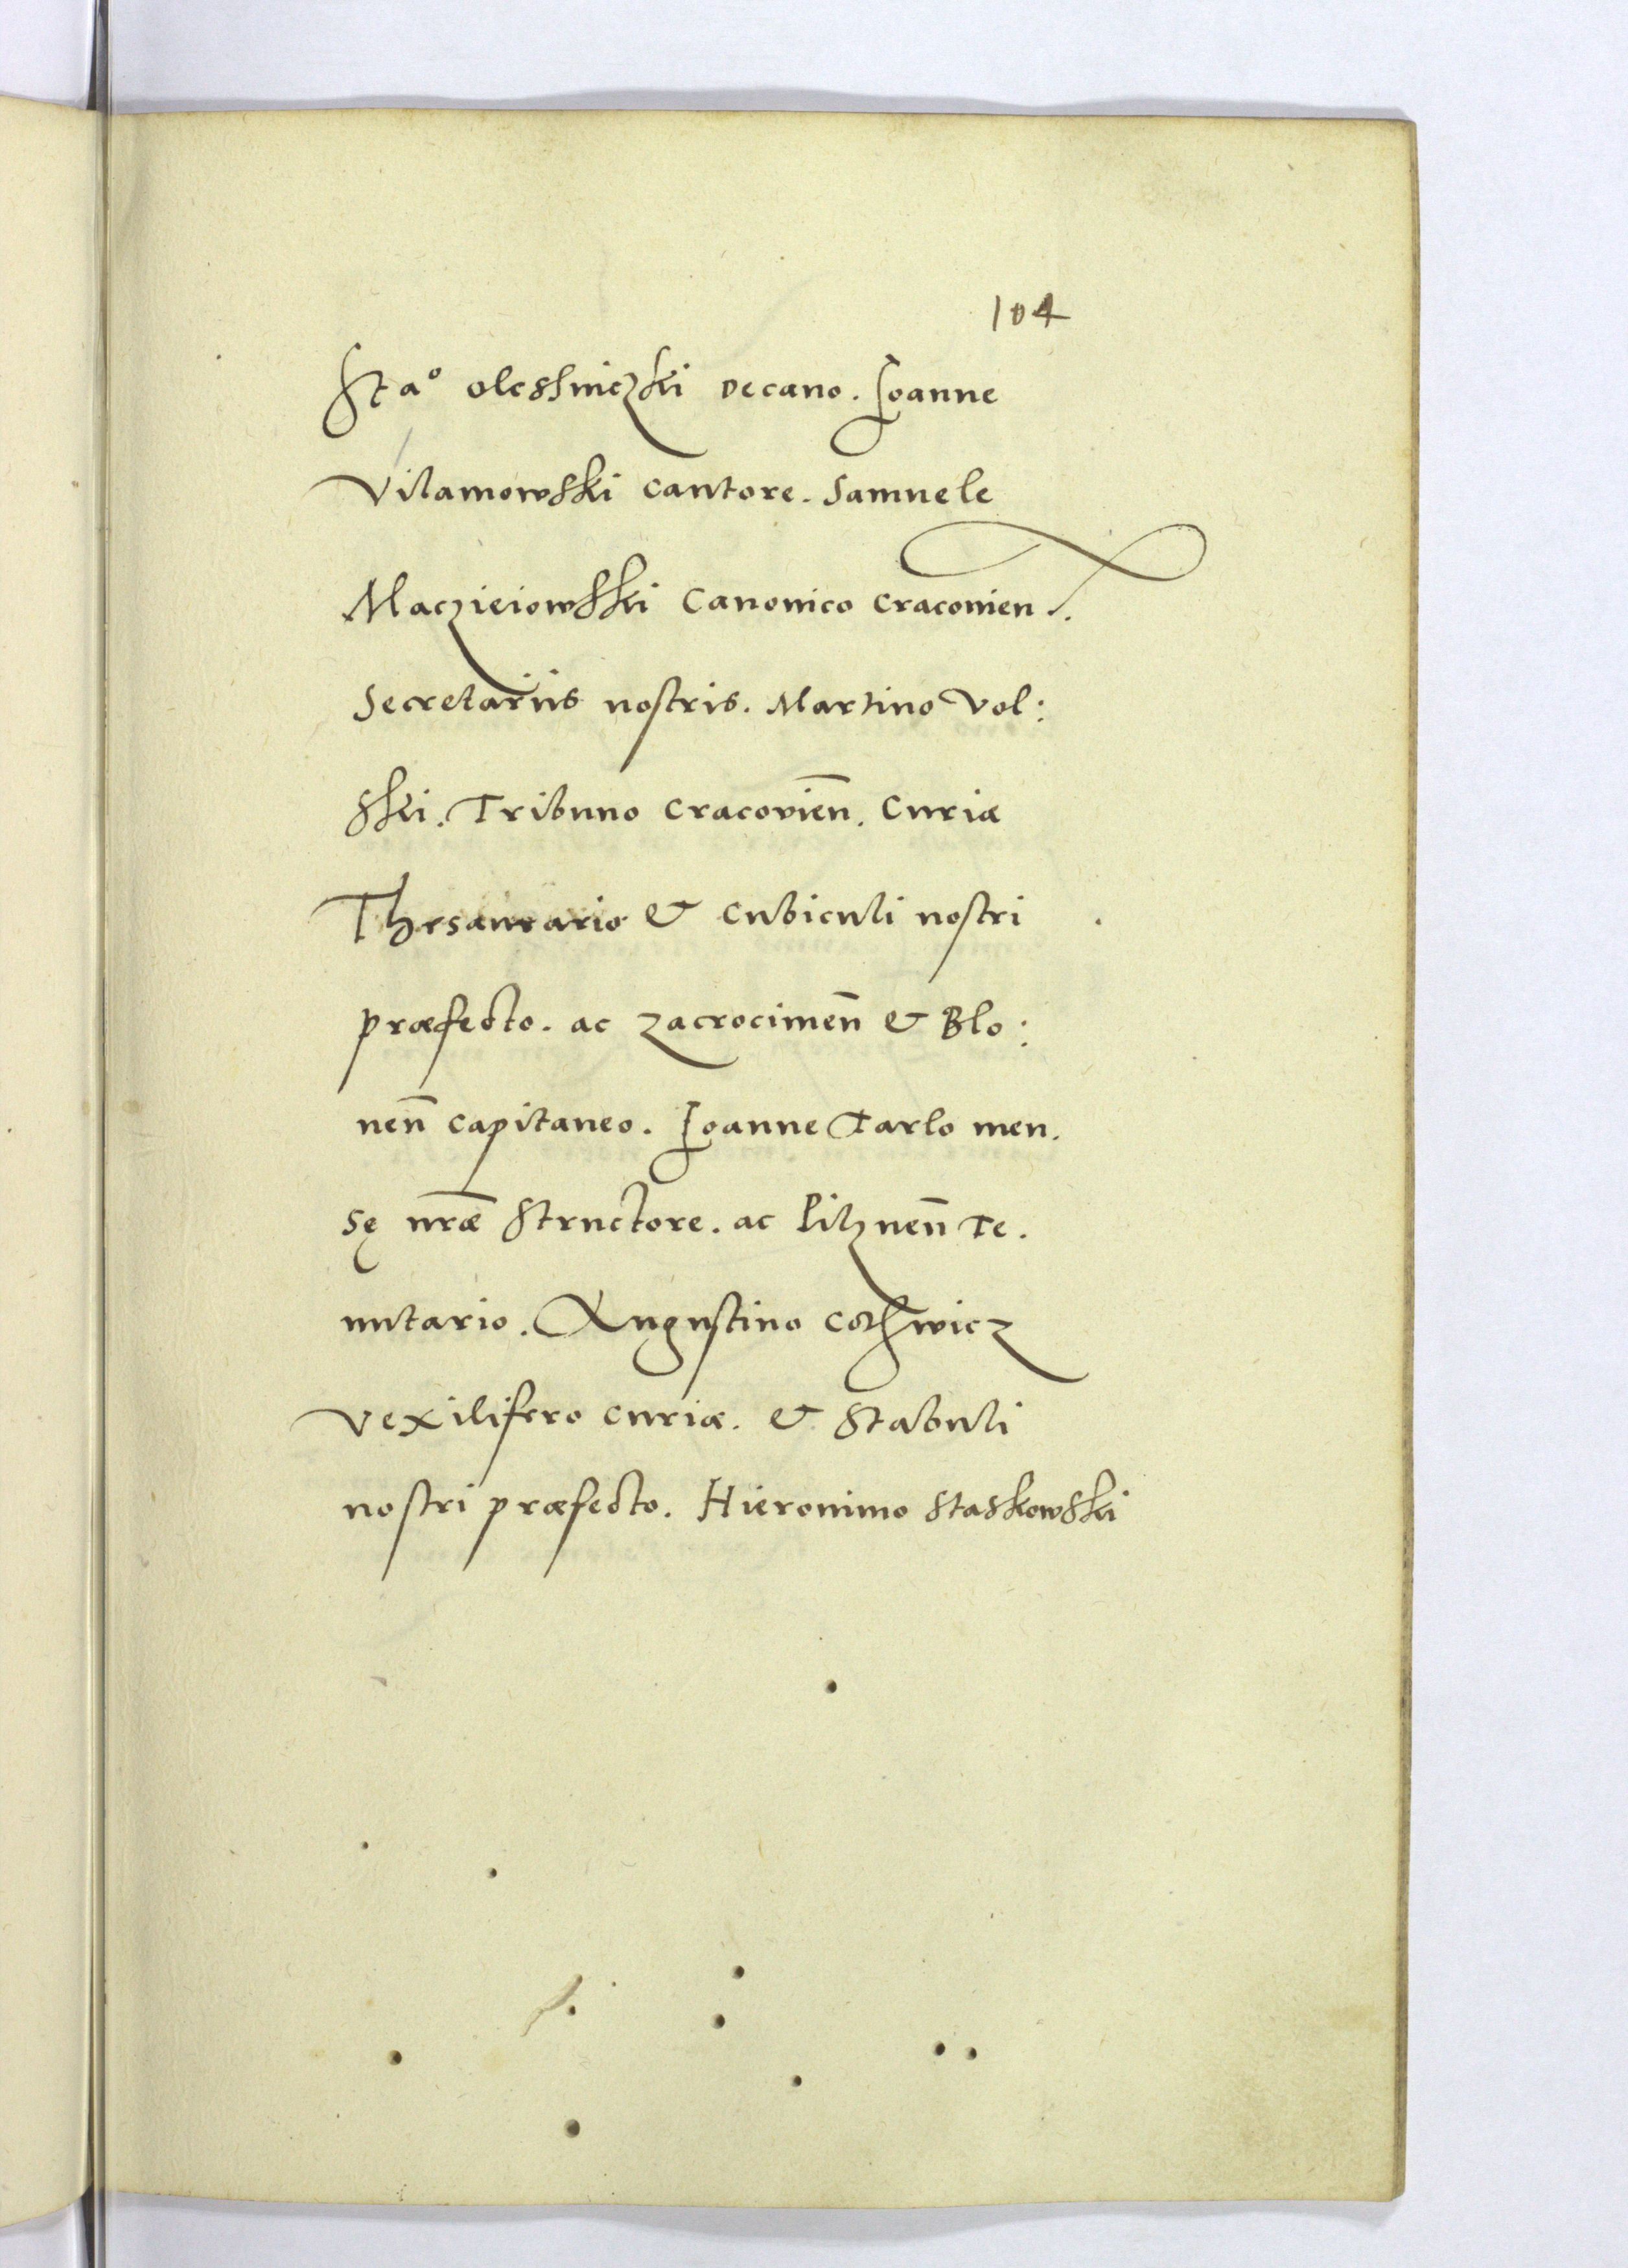 104
Staº olesshniczki Decano. Ioanne
Vilamowski cantore. Samuele
Maczieiowski Canonico Cracouien.
Secretariis nostris. Martino Vol:
ski. Tribuno Cracovien̄. Curiæ
Thesaurario & cubiculi nostri
præfecto. ac zacrocimen̄ & Blo:
nen̄ capitaneo. Ioanne Tarlo men.
sę nr̄æ Structore. ac Pilznen̄ Te.
nutario. Augustino Cothwicz
Vexilifero curiæ. & Stabuli
nostri præfecto. Hieronimo Staskowski